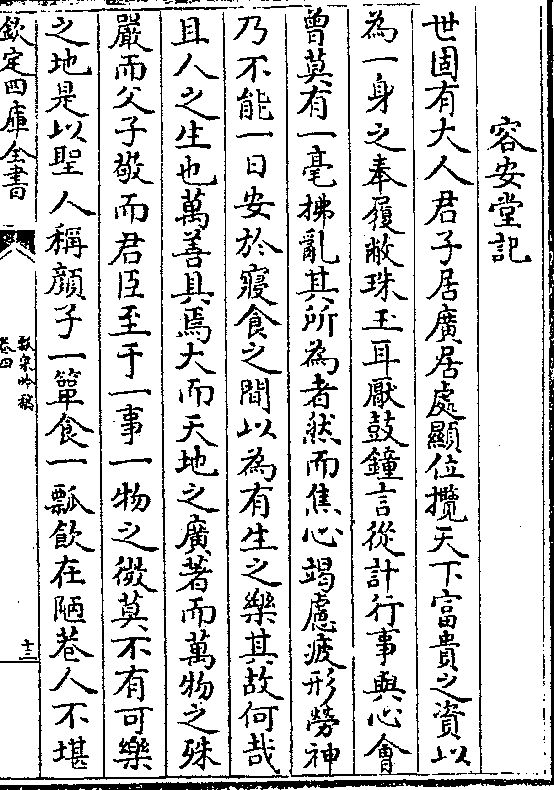 容安堂記
世固有大人君子居廣居處顯位攬天下富貴之資以
為一身之奉履敝珠玉耳厭鼓鐘言從計行事與心會
曾莫有一毫拂亂其所為者然而焦心竭慮疲形勞神
乃不能一日安於寢食之間以為有生之樂其故何哉
且人之生也萬善具焉大而天地之廣著而萬物之殊
嚴而父子敬而君臣至于一事一物之微莫不有可樂
之地是以聖人稱顔子一簞食一瓢飲在陋巷人不堪
欽定四庫全書
卷四
十三